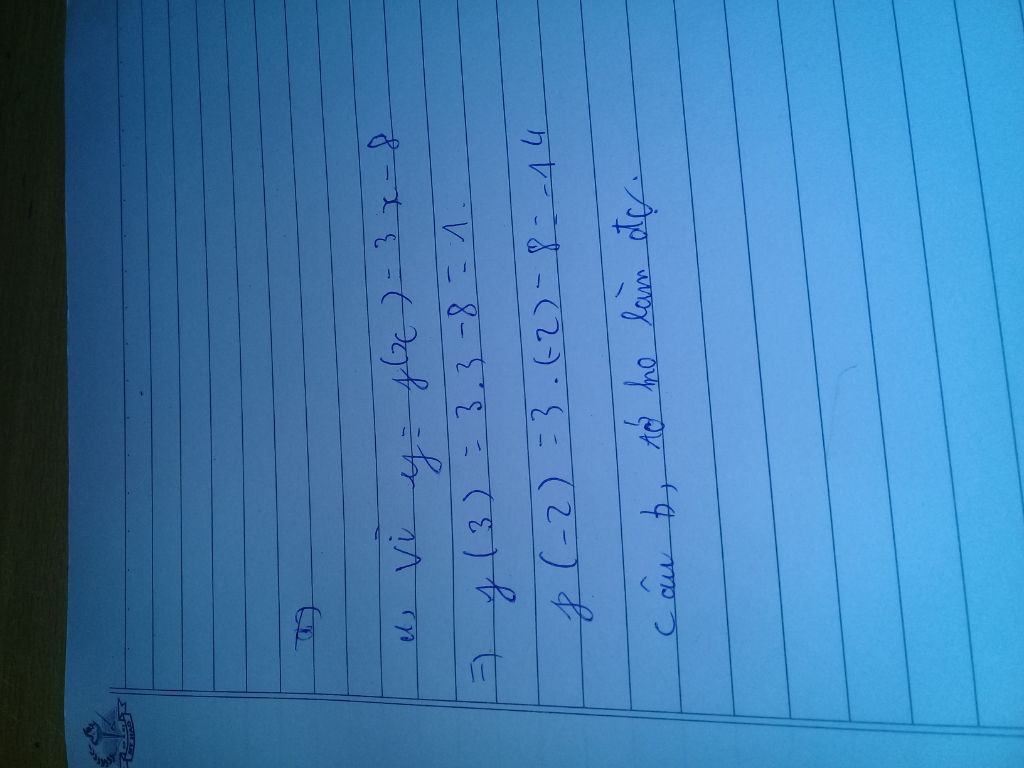 a, Vì y = f(x) = 3x - 8
=> f(3) = 3.3 - 8 = 1.
f(-2) = 3.(-2) - 8 = -14
Câu b, tớ ko làm đc.